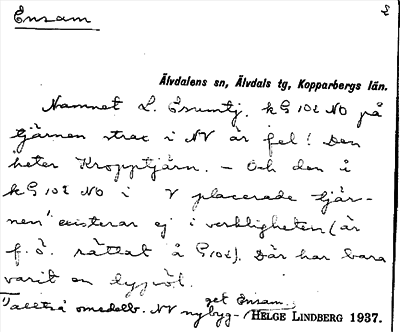 Ensam
Älvdalens sn, Älvdals tg, Kopparbergs län.
Namnet L. Ensamtj. k G 102 NO på
tjärnen strax i NV är fel! Den
heter Kropptjärn. – Och den å
k G 102 NO i V placerade tjär-
nen¹⁾ existerar ej i verkligheten (är
f. ö. rättat å G 102). Där har bara
varit en
¹⁾ alltså omedelb. NV nybyg- get Ensam.
HELGE LINDBERG 1937.